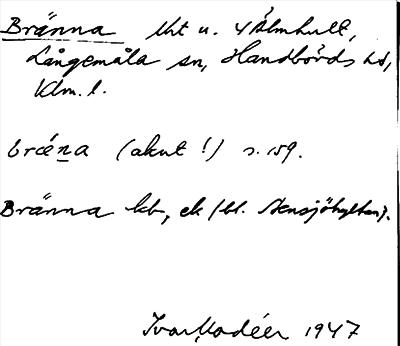 Bränna lht u. 4 Älmhult,
Långemåla sn, Handbörds hd,
Klm. l.
bränna (akut!) s. 159.
Bränna kb, ek (bl. Stensjöhyltan).
Ivar Modéer 1947